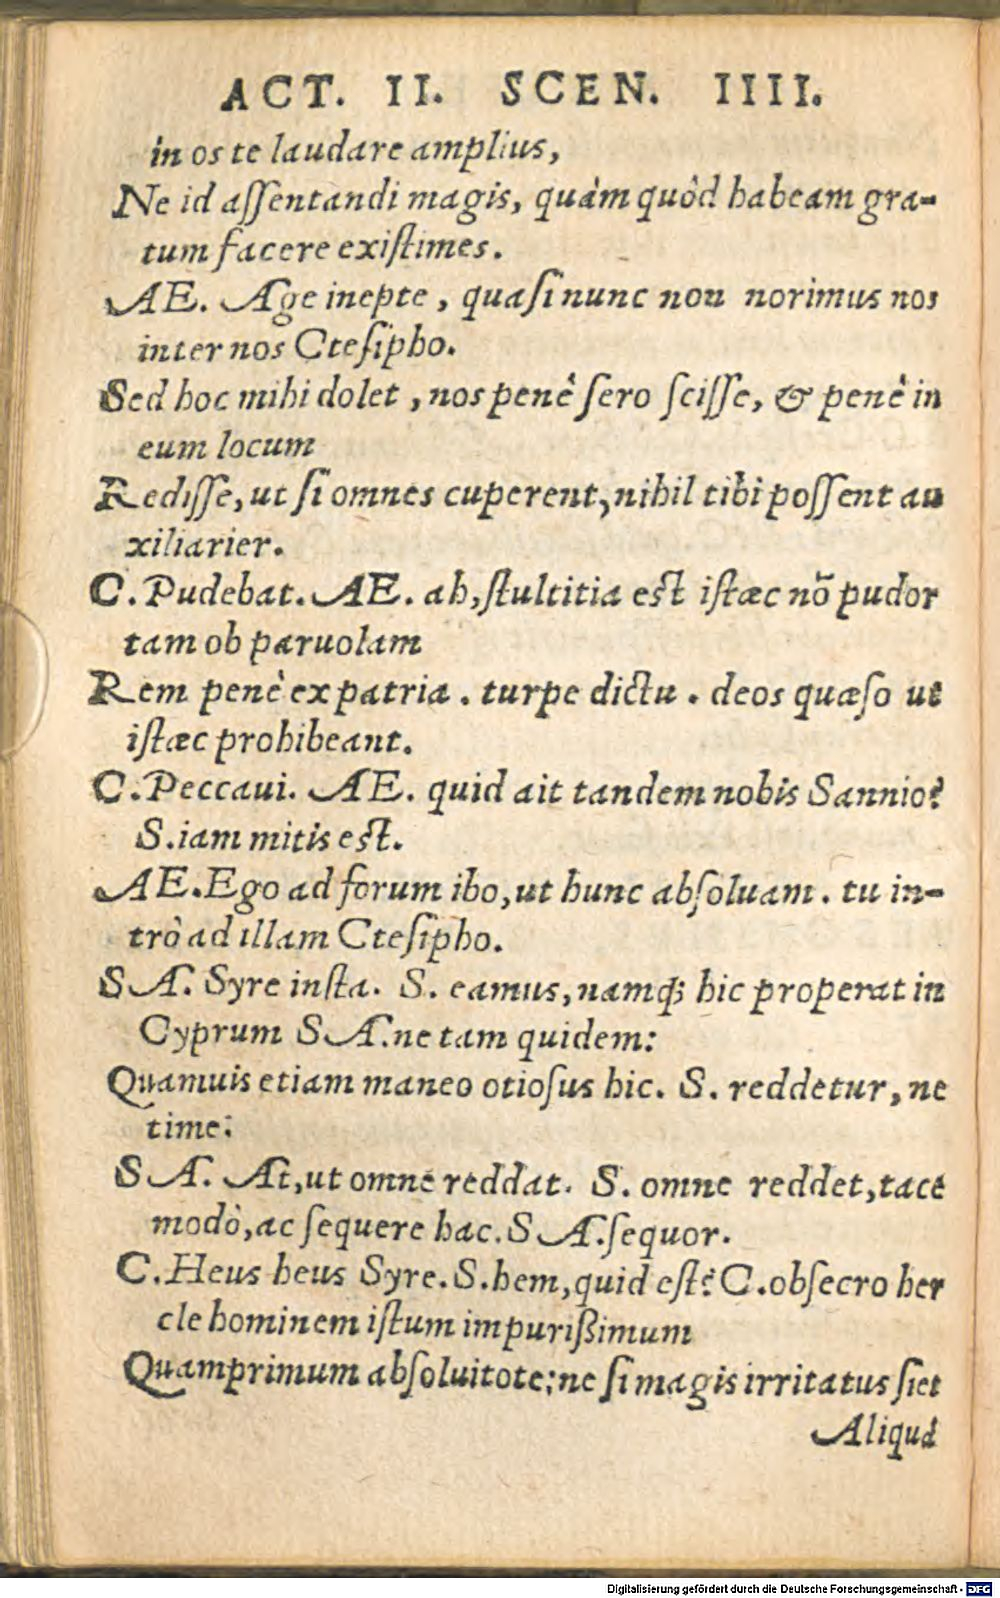 ACT. II. SCEN. IIII.
in os te laudare amplius,
Ne id aſſentandi magis, quàm quòd habeam gra-
tum facere exiſtimes.
AE. Age inepte, quaſi nunc non norimus nos
inter nos Cteſipho.
Sed hoc mihi dolet, nos penè ſero ſciſſe, & penè in
eum locum
Rediſſe, ut ſi omnes cuperent, nihil tibi poſſent au
xiliarier.
C. Pudebat. AE. ah, ſtultitia eſt iſtæc nõ pudor
tam ob paruolam
Rem penè ex patria. turpe dictu. deos quæſo ut
iſtæc prohibeant.
C. Peccaui. AE. quid ait tandem nobis Sannio?
S. iam mitis eſt.
AE. Ego ad forum ibo, ut hunc abſoluam. tu in-
trò ad illam Cteſipho.
SA. Syre inſta. S. eamus, namq; hic properat in
Cyprum SA. ne tam quidem:
Quamuis etiam maneo otioſus hic. S. reddetur, ne
time:
SA. At, ut omne reddat. S. omne reddet, tace
modò, ac ſequere hac. SA. ſequor.
C. Heus heus Syre. S. hem, quid eſt? C. obſecro her
cle hominem iſtum impurißimum
Quamprimum abſoluitote; ne ſi magis irritatus ſiet
Aliqua
Digitalisierung gefördert durch die Deutsche Forschungsgemeinschaft - DFG